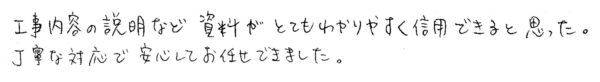 工事内容の説明など 資料が とてもわかりやすく信用できると思った。
丁寧な対応で安心してお任せできました。